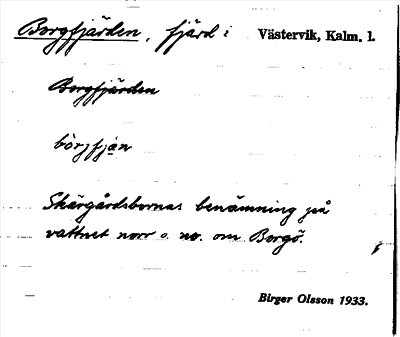 Borgfjärden, fjärd i Västervik, Kalm. l.
Borgfjärden
börjfjan
Skärgårdsbornas benämning på
vattnet norr o. no. om Borgö.
Birger Olsson 1933.